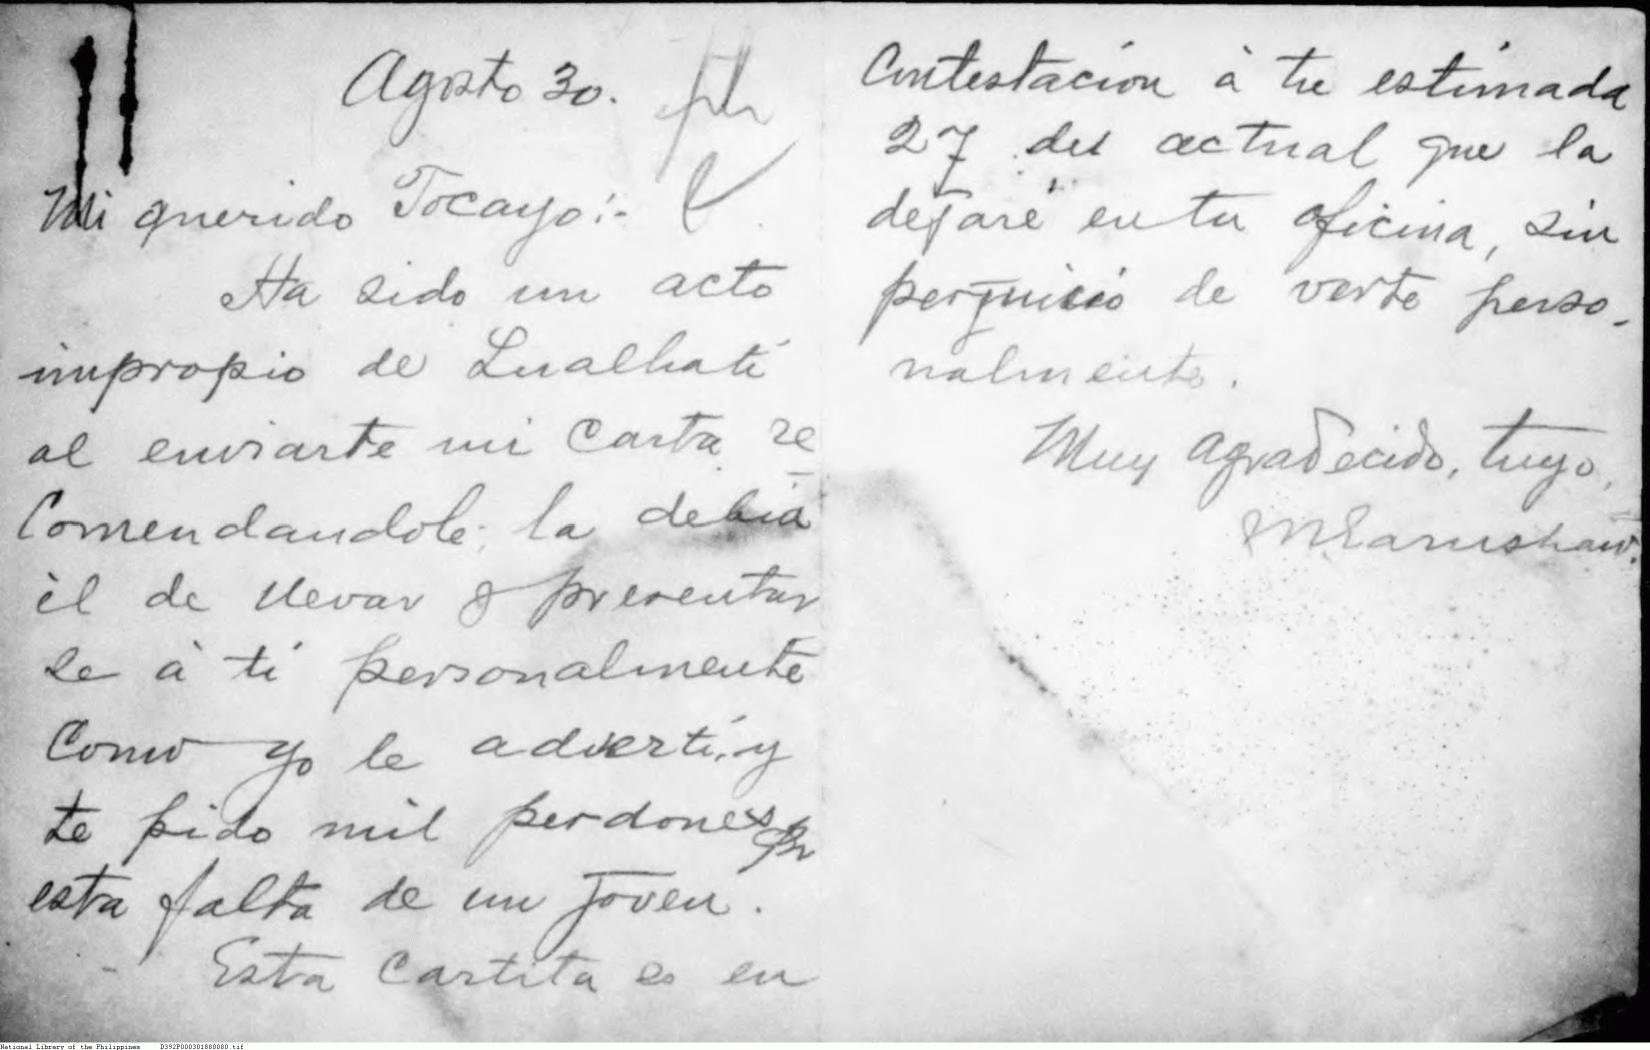 Agosto 30.
Mi querido Tocayo:-
Ha sido un acto
impropio de Lualhati
al enviarte mi carta re
comendandole; la debia
él de llevar y presentar
se à ti personalmente
como yo le adverti, y
te pido mil perdones por
esta falta de un joven.
Esta cartita es en
contestacion à tu estimada
27 del actual que la
dejaré en tu oficina, sin
perjuicio de verte perso-
nalmente.
Muy agradecido, tuyo,
M. Earnshaw.
National Library of the Philippines D392P000301880080.tif